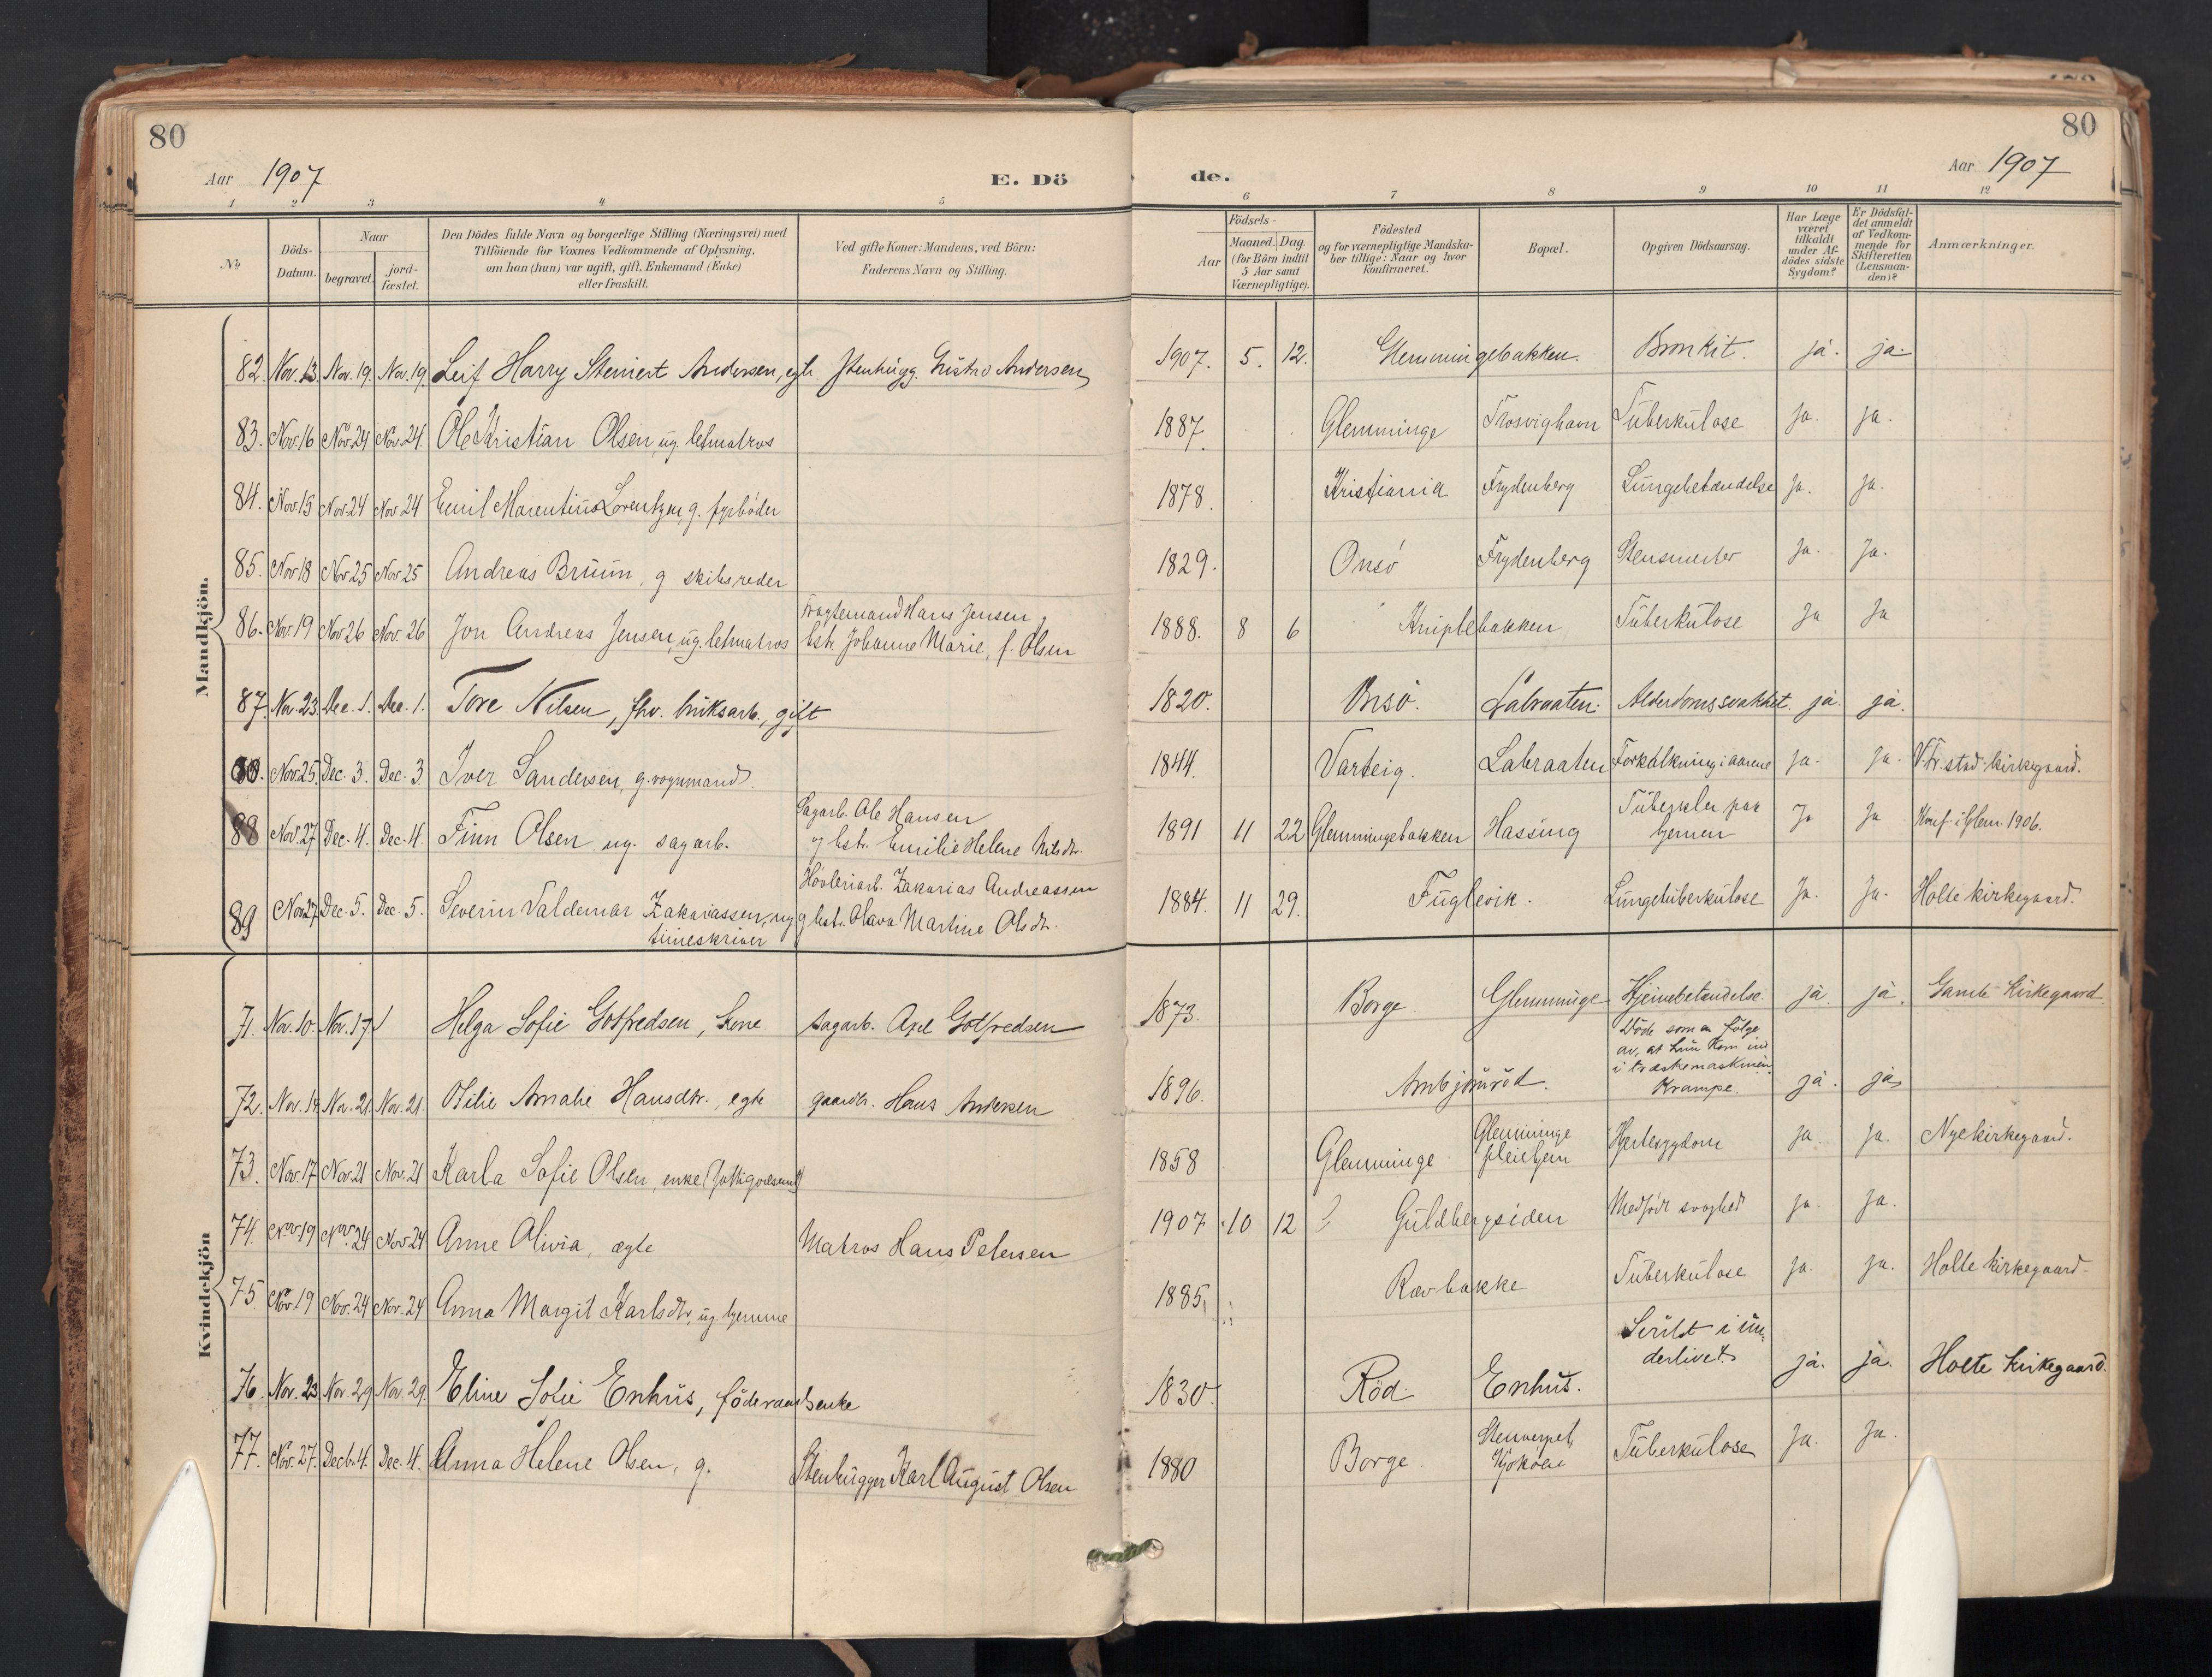 80
80
Aar 1907
E. Dö
de.
Aar 1907
1 2 3 4 5 6 7 8 9 10 11 12
No
Döds-
Datum.
Naar
begravet.
jord-
fæstet.
Den Dödes fulde Navn og borgerlige Stilling (Næringsvei) med
Tilföiende for Voxnes Vedkommende af Oplysning,
om han (hun) var ugift, gift, Enkemand (Enke)
eller fraskilt.
Ved gifte Koner: Mandens, ved Börn:
Faderens Navn og Stilling.
Födsels-
Aar
Maaned. Dag.
(for Börn indtil
5 Aar samt
Værnepligtige).
Födested
og for værnepligtige Mandska-
ber tillige: Naar og hvor
konfirmeret.
Bopæl.
Opgiven Dödsaarsag.
Har Læge
været
tilkaldt
under Af-
dödes sidste
Sygdom?
Er Dödsfal-
det anmeldt
af Vedkom-
mende for
Skifteretten
(Lensman-
den)?
Anmærkninger.
Mandkjön.
82. Nov. 13. Nov. 19. Nov. 19. Leif Harry Steinert Andersen, egte Stenhugg. Gustav Andersen 1907. 5. 12. Glemmingebakken. Bronkit. ja. ja.
83. Nov. 16 Nov. 24 Nov. 24. Ole Kristian Olsen, ug. letmatros 1887 Glemminge Trosvighavn Tuberkulose Ja. ja.
84. Nov. 15 Nov. 24 Nov 24 Emil Marentius Lorentzen, g. fyrbøder 1878. Kristiania Frydenberg Lungebetændelse Ja. Ja.
85. Nov 18 Nov 25 Nov 25 Andreas Bruun, g skibsreder 1829. Onsø Frydenberg Ja. Ja.
Fragtemand Hans Jensen
86. Nov. 19 Nov 26 Nov. 26 Jon Andreas Jensen, ug. letmatros hstr. Johanne Marie, f. Olsen 1888. 8 6 Kniplebakken Tuberkulose Ja Ja
87. Nov. 23. Dec. 1. Dec. 1. Tore Nilsen, fhv. bruksarb., gift 1820. Onsø. Labraaten. Alderdomssvakhet. ja. ja.
Nov. 25. Dec. 3. Dec. 3 Iver Sandersen, g. vognmand. 1844. Varteig. Labraaten Forkalkning i aarene Ja. Ja. V. Fr.stad kirkegaard.
Sagarb. Ole Hansen
88 Nov. 27 Dec. 4. Dec. 4. Finn Olsen ug. sagarb. og hstr. Emilie Helene Nilsdtr. 1891 11 22 Glemmingebakken Hassing Tuberkler paa
hjernen Ja Ja Konf. i Glem. 1906.
Høvleriarb. Zakarias Andreassen
89 Nov. 27 Dec. 5. Dec. 5. Severin Valdemar Zakariassen, ug og hstr. Olava Martine Olsdtr. 1884. 11 29. Fuglevik. Lungetuberkulose Ja. Ja. Holte kirkegaard.
timeskriver
Kvindekjön
71. Nov. 10. Nov. 17. Helga Sofie Gotfredsen, kone sagarb. Axel Gotfredsen 1873. Borge Glemminge Hjernebetændelse. ja. ja. Gamle Kirkegaard
Døde som en følge
av, at hun kom ind
i træskemaskinen.
72. Nov. 14. Nov. 21. Nov. 21. Otilie Amalie Hansdtr., egte gaardbr. Hans Andersen 1896. Ambjørnrød. Krampe. ja. ja
73. Nov. 17 Nov. 21 Nov. 21 Karla Sofie Olsen, enke 1858 Glemminge Glemminge
pleiehjem Hjertesygdom Ja. Ja. Nye kirkegaard.
74. Nov. 19 Nov. 24 Nov 24 Anne Olivia, ægte Matros Hans Petersen 1907 10 12 Guldbergsiden Medfødt svaghed Ja. Ja.
75 Nov. 19 Nov. 24 Nov. 24 Anna Margit Karlsdtr, ug. hjemme 1885. Rævbakke Tuberkulose Ja. Ja. Holte kirkegaard.
76. Nov. 23 Nov. 29 Nov. 29. Eline Sofie Enhus, föderaadsenke 1830. Röd. Enhus. Svulst i un-
derlivet. ja. ja. Holte Kirkegaard.
77. Nov. 27. Decb. 4. Dec. 4. Anna Helene Olsen, g. Stenhugger Karl August Olsen 1880 Borge Kjøkøen Tuberkulose Ja. Ja.